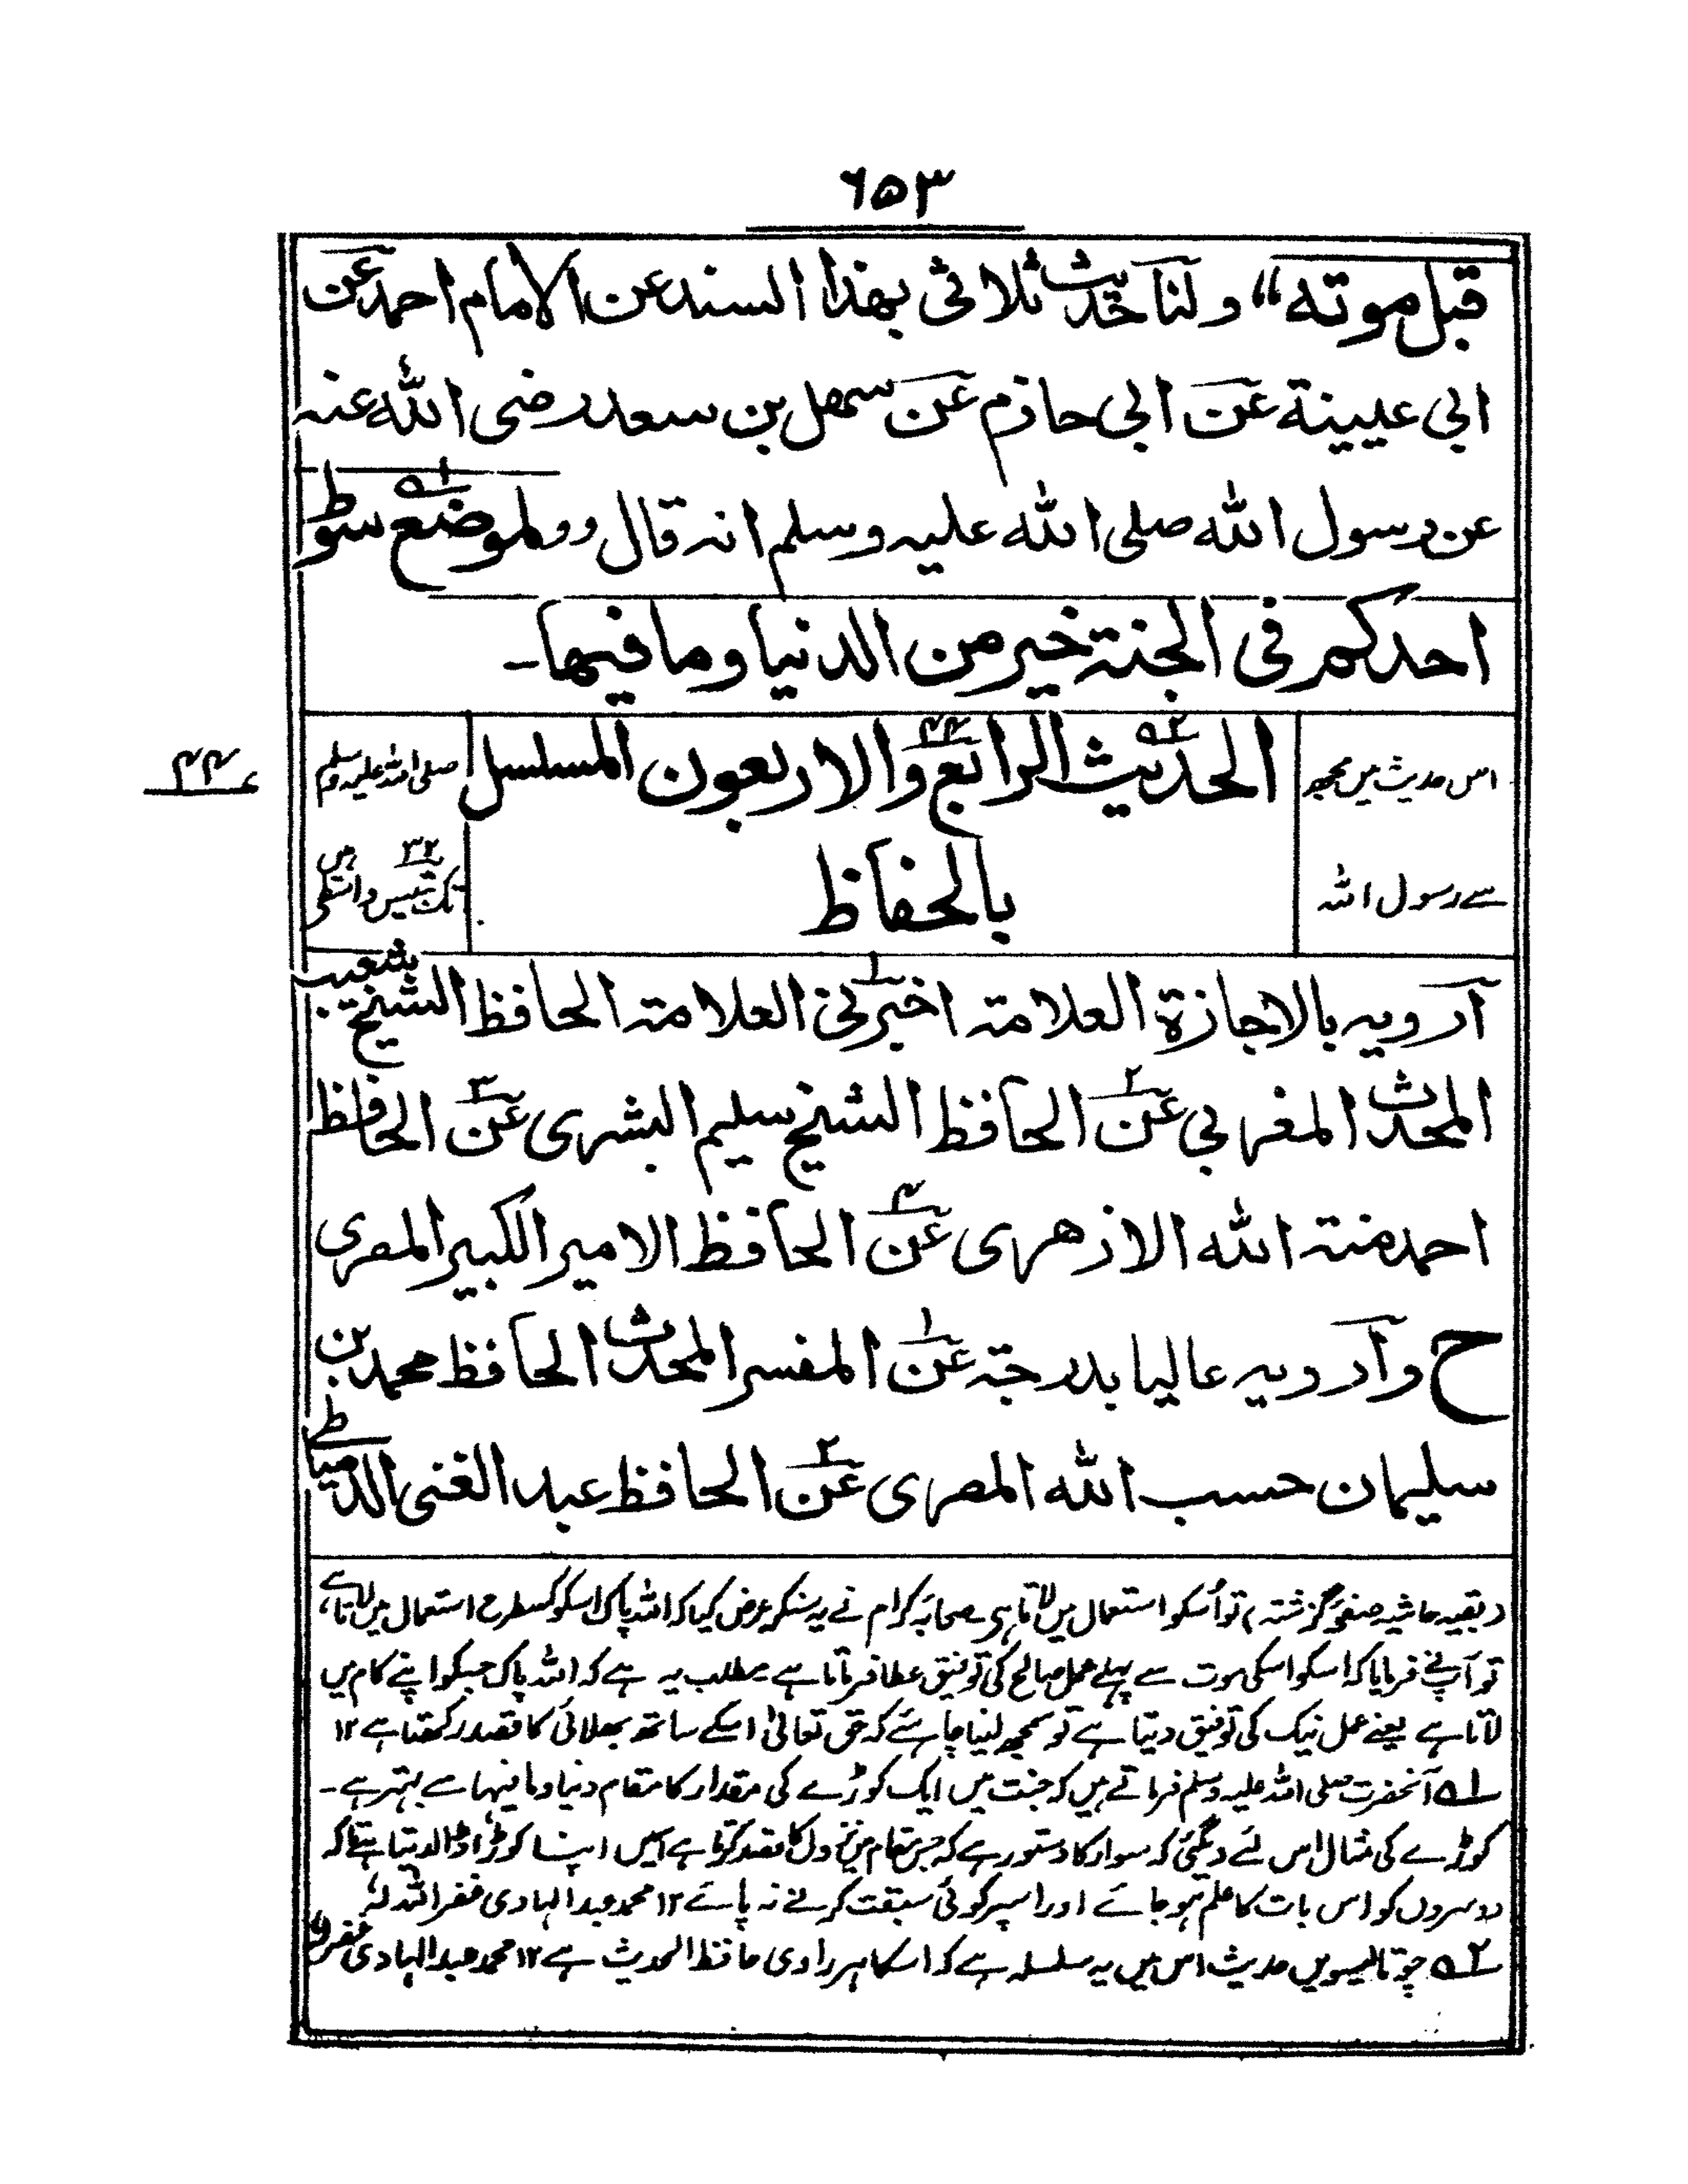 ٦٥٣
قبل موته" ولنا حديث ثلاثى بهذا السند عن الامام احمد عن
ابي عيينة عن ابي حازم عن سهل بن سعد رضى الله عنه
عن رسول الله صلى الله عليه وسلم انه قال وولموضع سوط
احدكم فى الجنة خير من الدنيا وما فيها۔
اس حدیث میں مجھ سے رسول اللہ
الحديث الرابع والاربعون المسلسل
بالحفاظ
صلی اللہ علیہ وسلم تک بتیس واسطے ہیں ۳۲
۴۴
ارويه بالاجازة العلامة اخبرنى العلامة الحافظ الشيخ شعيب
المحدث المغربي عن الحافظ الشيخ سليم البشرى عن الحافظ
احمد منة الله الازهرى عن الحافظ الامير الكبير المصرى
ح وارويه عاليا بدرجة عن المفسر المحدث الحافظ محمد بن
سليمان حسب الله المصرى عن الحافظ عبد الغنى الدمياطى
(بقیہ حاشیہ صفحہ گزشتہ) تو اُسکو استعمال میں لاتا ہی صحابہ کرام نے یہ سنکر عرض کیا کہ اللہ پاک اسکو کسطرح استعمال میں لاتا ہے
تو آپنے فرمایا کہ اسکو اسکی موت سے پہلے عمل صالح کی توفیق عطا فرماتا ہے مطلب یہ ہے کہ اللہ پاک جسکو اپنے کام میں
لاتا ہے یعنے عمل نیک کی توفیق دیتا ہے تو سمجھ لینا چاہئے کہ حق تعالیٰ اسکے ساتھ بھلائی کا قصد رکھتا ہے ۱۲
۱ے آنحضرت صلی اللہ علیہ وسلم فرماتے ہیں کہ جنت میں ایک کوڑے کی مقدار کا مقام دنیا وما فیہا سے بہتر ہے۔
کوڑے کی مثال اس لئے دیگئی کہ سوار کا دستور ہے کہ جس مقام میں نزول کا قصد کرتا ہے اسمیں اپنا کوڑا ڈالدیتا ہے تاکہ
دوسروں کو اس بات کا علم ہو جائے اور اسپر کوئی سبقت کرنے نہ پائے ۱۲ محمد عبد الہادی غفر اللہ لہ
۲ے چوتالیسویں حدیث اس میں یہ سلسلہ ہے کہ اسکا ہر راوی حافظ الحدیث ہے ۱۲ محمد عبد الہادی غفرلہ